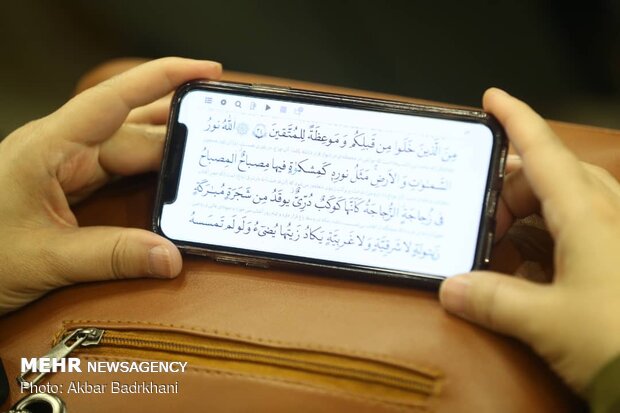 مِنَ الَّذينَ خَلَوا مِن قَبلِكُم وَ مَوعِظَةً لِلمُتَّقينَ ﴿٣٤﴾ اللهُ نورُ
السَّمٰوٰتِ وَ الاَرضِ مَثَلُ نورِه كَمِشكوٰةٍ فيها مِصباحٌ المِصباحُ
فى زُجاجَةٍ الزُّجاجَةُ كَاَنَّها كَوكَبٌ دُرِّىٌّ يوقَدُ مِن شَجَرَةٍ مُبٰرَكَةٍ
زَيتونَةٍ لا شَرقِيَّةٍ وَ لا غَربِيَّةٍ يَكادُ زَيتُها يُضىءُ وَ لَو لَم تَمسَسهُ
MEHR NEWSAGENCY
Photo: Akbar Badrkhani